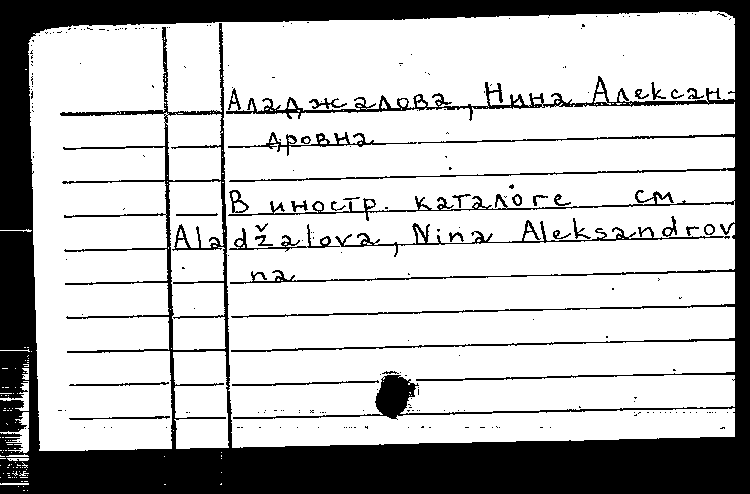 Аладжалова, Нина Алексан-
дровна
В иностр. каталоге см.
Aladžalova, Nina Aleksandrov
na